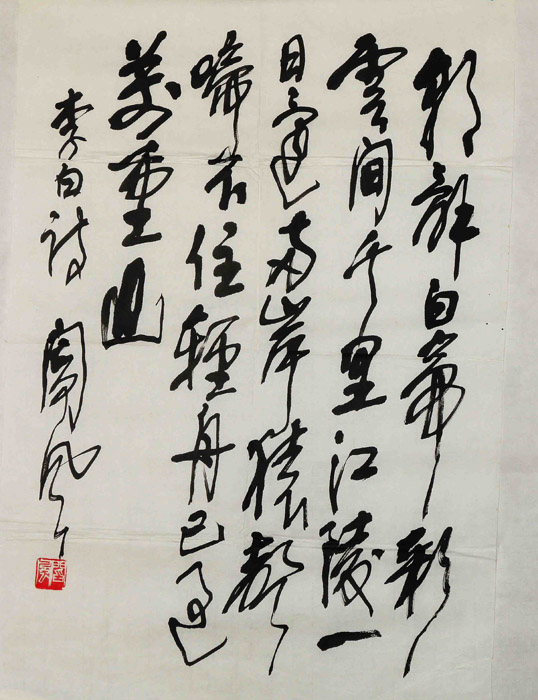 朝辭白帝彩
雲間千里江陵一
日還兩岸猿聲
啼不住輕舟已過
萬重山
李白詩